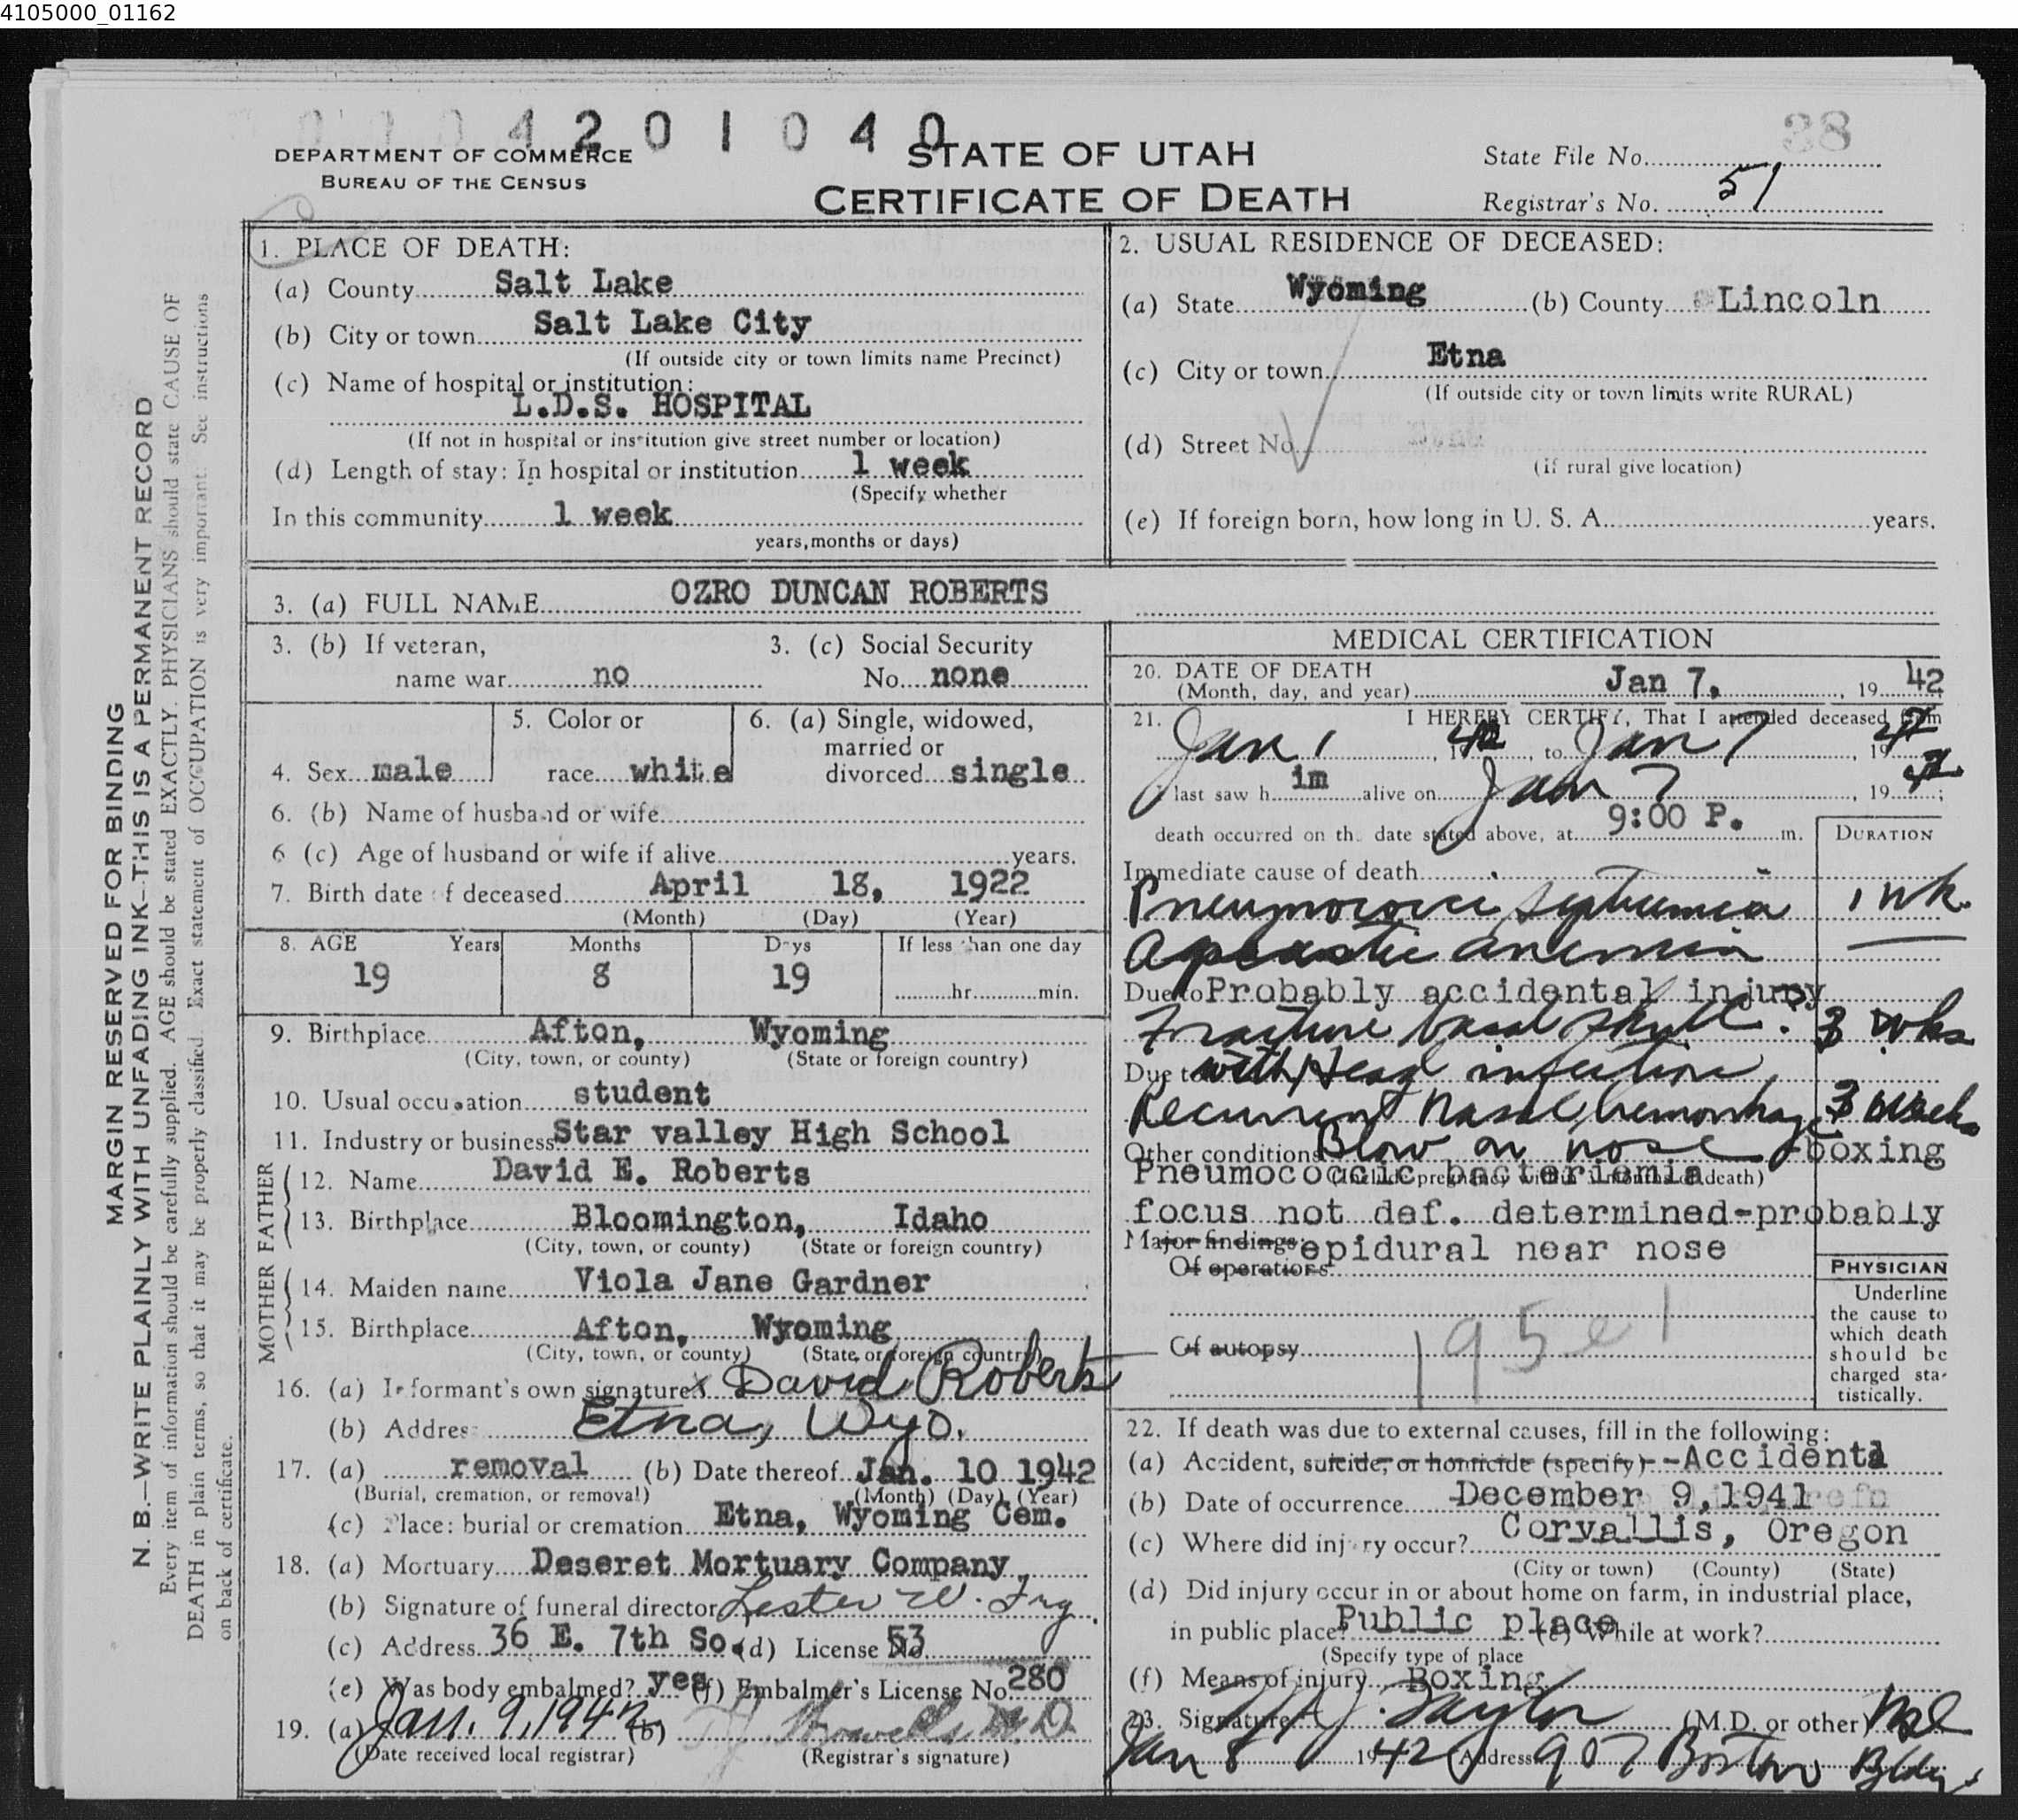 4105000_01162
4 2 0 1 0 4 0
38
DEPARTMENT OF COMMERCE
BUREAU OF THE CENSUS
STATE OF UTAH
CERTIFICATE OF DEATH
State File No.
Registrar's No. 51
MARGIN RESERVED FOR BINDING
N. B.—WRITE PLAINLY WITH UNFADING INK—THIS IS A PERMANENT RECORD
Every item of information should be carefully supplied. AGE should be stated EXACTLY. PHYSICIANS should state CAUSE OF
DEATH in plain terms, so that it may be properly classified. Exact statement of OCCUPATION is very important. See instructions
on back of certificate.
1. PLACE OF DEATH:
(a) County Salt Lake
(b) City or town Salt Lake City
(If outside city or town limits name Precinct)
(c) Name of hospital or institution:
L.D.S. HOSPITAL
(If not in hospital or institution give street number or location)
(d) Length of stay: In hospital or institution 1 week
(Specify whether
In this community 1 week
years, months or days)
2. USUAL RESIDENCE OF DECEASED:
(a) State Wyoming (b) County Lincoln
(c) City or town Etna
(If outside city or town limits write RURAL)
(d) Street No.
(if rural give location)
(e) If foreign born, how long in U. S. A. years.
3. (a) FULL NAME OZRO DUNCAN ROBERTS
3. (b) If veteran,
name war no
3. (c) Social Security
No. none
4. Sex male
5. Color or
race white
6. (a) Single, widowed,
married or
divorced single
6. (b) Name of husband or wife
6 (c) Age of husband or wife if alive years.
7. Birth date of deceased April 18, 1922
(Month) (Day) (Year)
8. AGE Years Months Days If less than one day
19 8 19 hr. min.
9. Birthplace Afton, Wyoming
(City, town, or county) (State or foreign country)
10. Usual occupation student
11. Industry or business Star valley High School
FATHER
12. Name David E. Roberts
13. Birthplace Bloomington, Idaho
(City, town, or county) (State or foreign country)
MOTHER
14. Maiden name Viola Jane Gardner
15. Birthplace Afton, Wyoming
(City, town, or county) (State or foreign country)
16. (a) Informant's own signature x David Roberts
(b) Address Etna, Wyo.
17. (a) removal (b) Date thereof Jan. 10 1942
(Burial, cremation, or removal) (Month) (Day) (Year)
(c) Place: burial or cremation Etna, Wyoming Cem.
18. (a) Mortuary Deseret Mortuary Company
(b) Signature of funeral director Lester W.
(c) Address 36 E. 7th So. (d) License No. 53
(e) Was body embalmed? yes (f) Embalmer's License No. 280
19. (a) Jan. 9, 1942 (b) Howells M.D.
(Date received local registrar) (Registrar's signature)
MEDICAL CERTIFICATION
20. DATE OF DEATH
(Month, day, and year) Jan 7, 19 42
21. I HEREBY CERTIFY, That I attended deceased from
Jan 1, 1942, to Jan 7, 1942
I last saw h im alive on Jan 7, 19 42;
death occurred on the date stated above, at 9:00 P. m.
DURATION
Immediate cause of death
Pneumococcic septicemia 1 wk.
Aplastic anemia
Due to Probably accidental injury
Fracture basal skull. 3 wks
Due to with head infection,
Recurrent nasal hemorrhage 3 weeks
Other conditions Blow on nose -boxing
(Include pregnancy within 3 months of death)
Pneumococcic bacteriemia
focus not def. determined-probably
Major findings: epidural near nose
Of operations
Of autopsy
195e1
PHYSICIAN
Underline
the cause to
which death
should be
charged sta-
tistically.
22. If death was due to external causes, fill in the following:
(a) Accident, suicide, or homicide (specify) --Accidental
(b) Date of occurrence December 9,1941
(c) Where did injury occur? Corvallis, Oregon
(City or town) (County) (State)
(d) Did injury occur in or about home on farm, in industrial place,
in public place? Public place (e) While at work?
(Specify type of place
(f) Means of injury Boxing
23. Signature Taylor (M.D. or other) MD
Jan 8 1942 Address 907 Boston Bldg